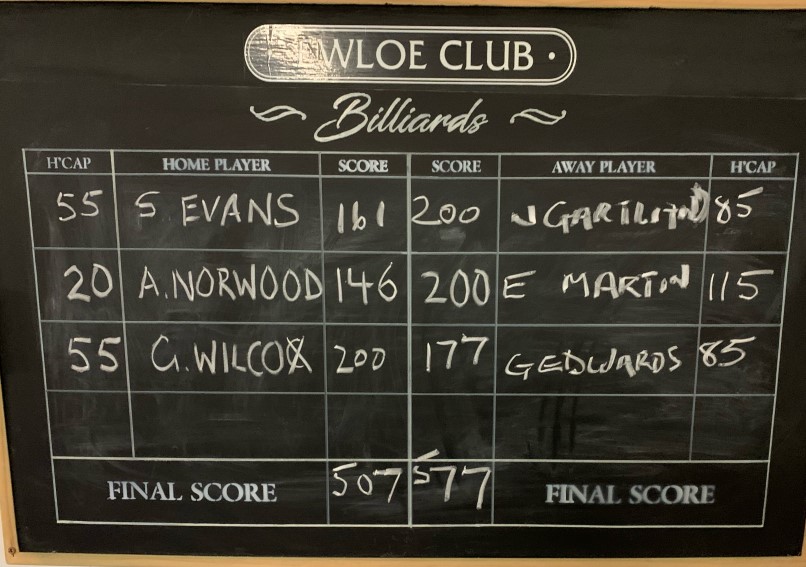 WLOE CLUB ·
Billiards
H'CAP HOME PLAYER SCORE SCORE AWAY PLAYER H'CAP
55 S. EVANS 161 200 J 85
20 A.NORWOOD 146 200 E MARTIN 115
55 G.WILCOX 200 177 G EDWARDS 85
FINAL SCORE 507 577 FINAL SCORE